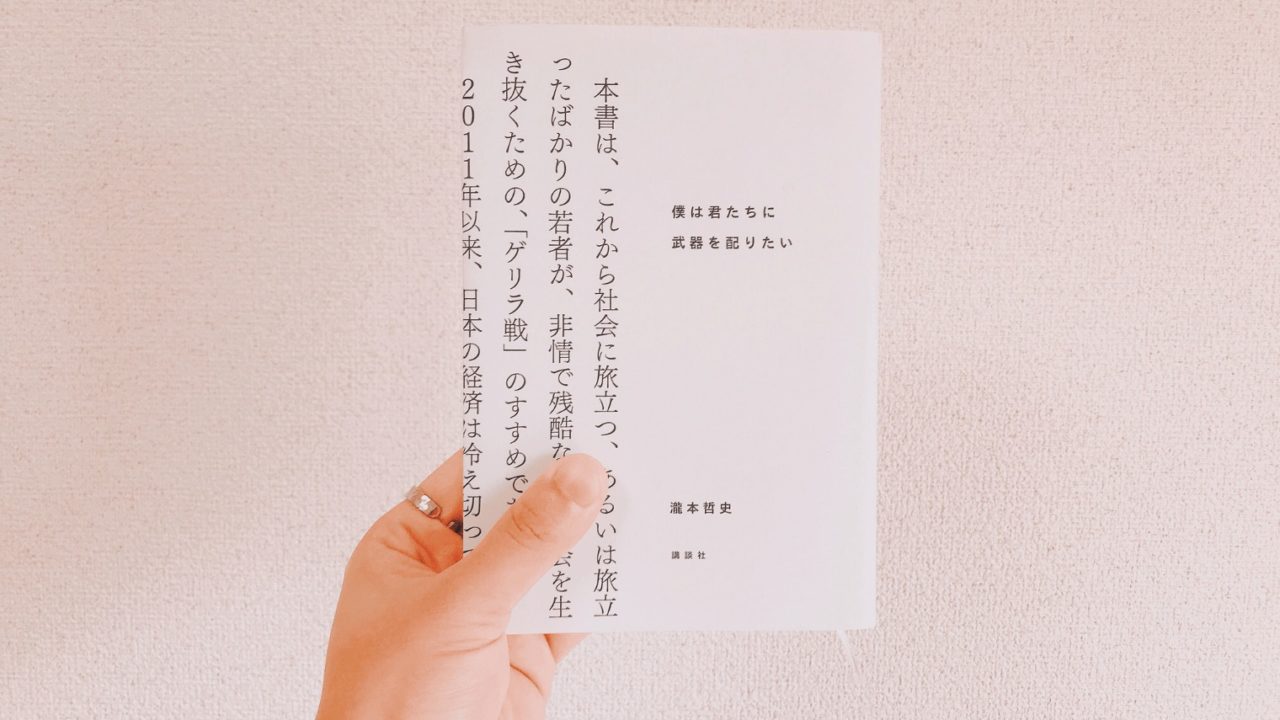 本書は、これから社会に旅立つ、あるいは旅立
ったばかりの若者が、非情で残酷な会を生
き抜くための、「ゲリラ戦」のすすめで
2011年以来、日本の経済は冷え切って
僕は君たちに
武器を配りたい
瀧本哲史
講談社